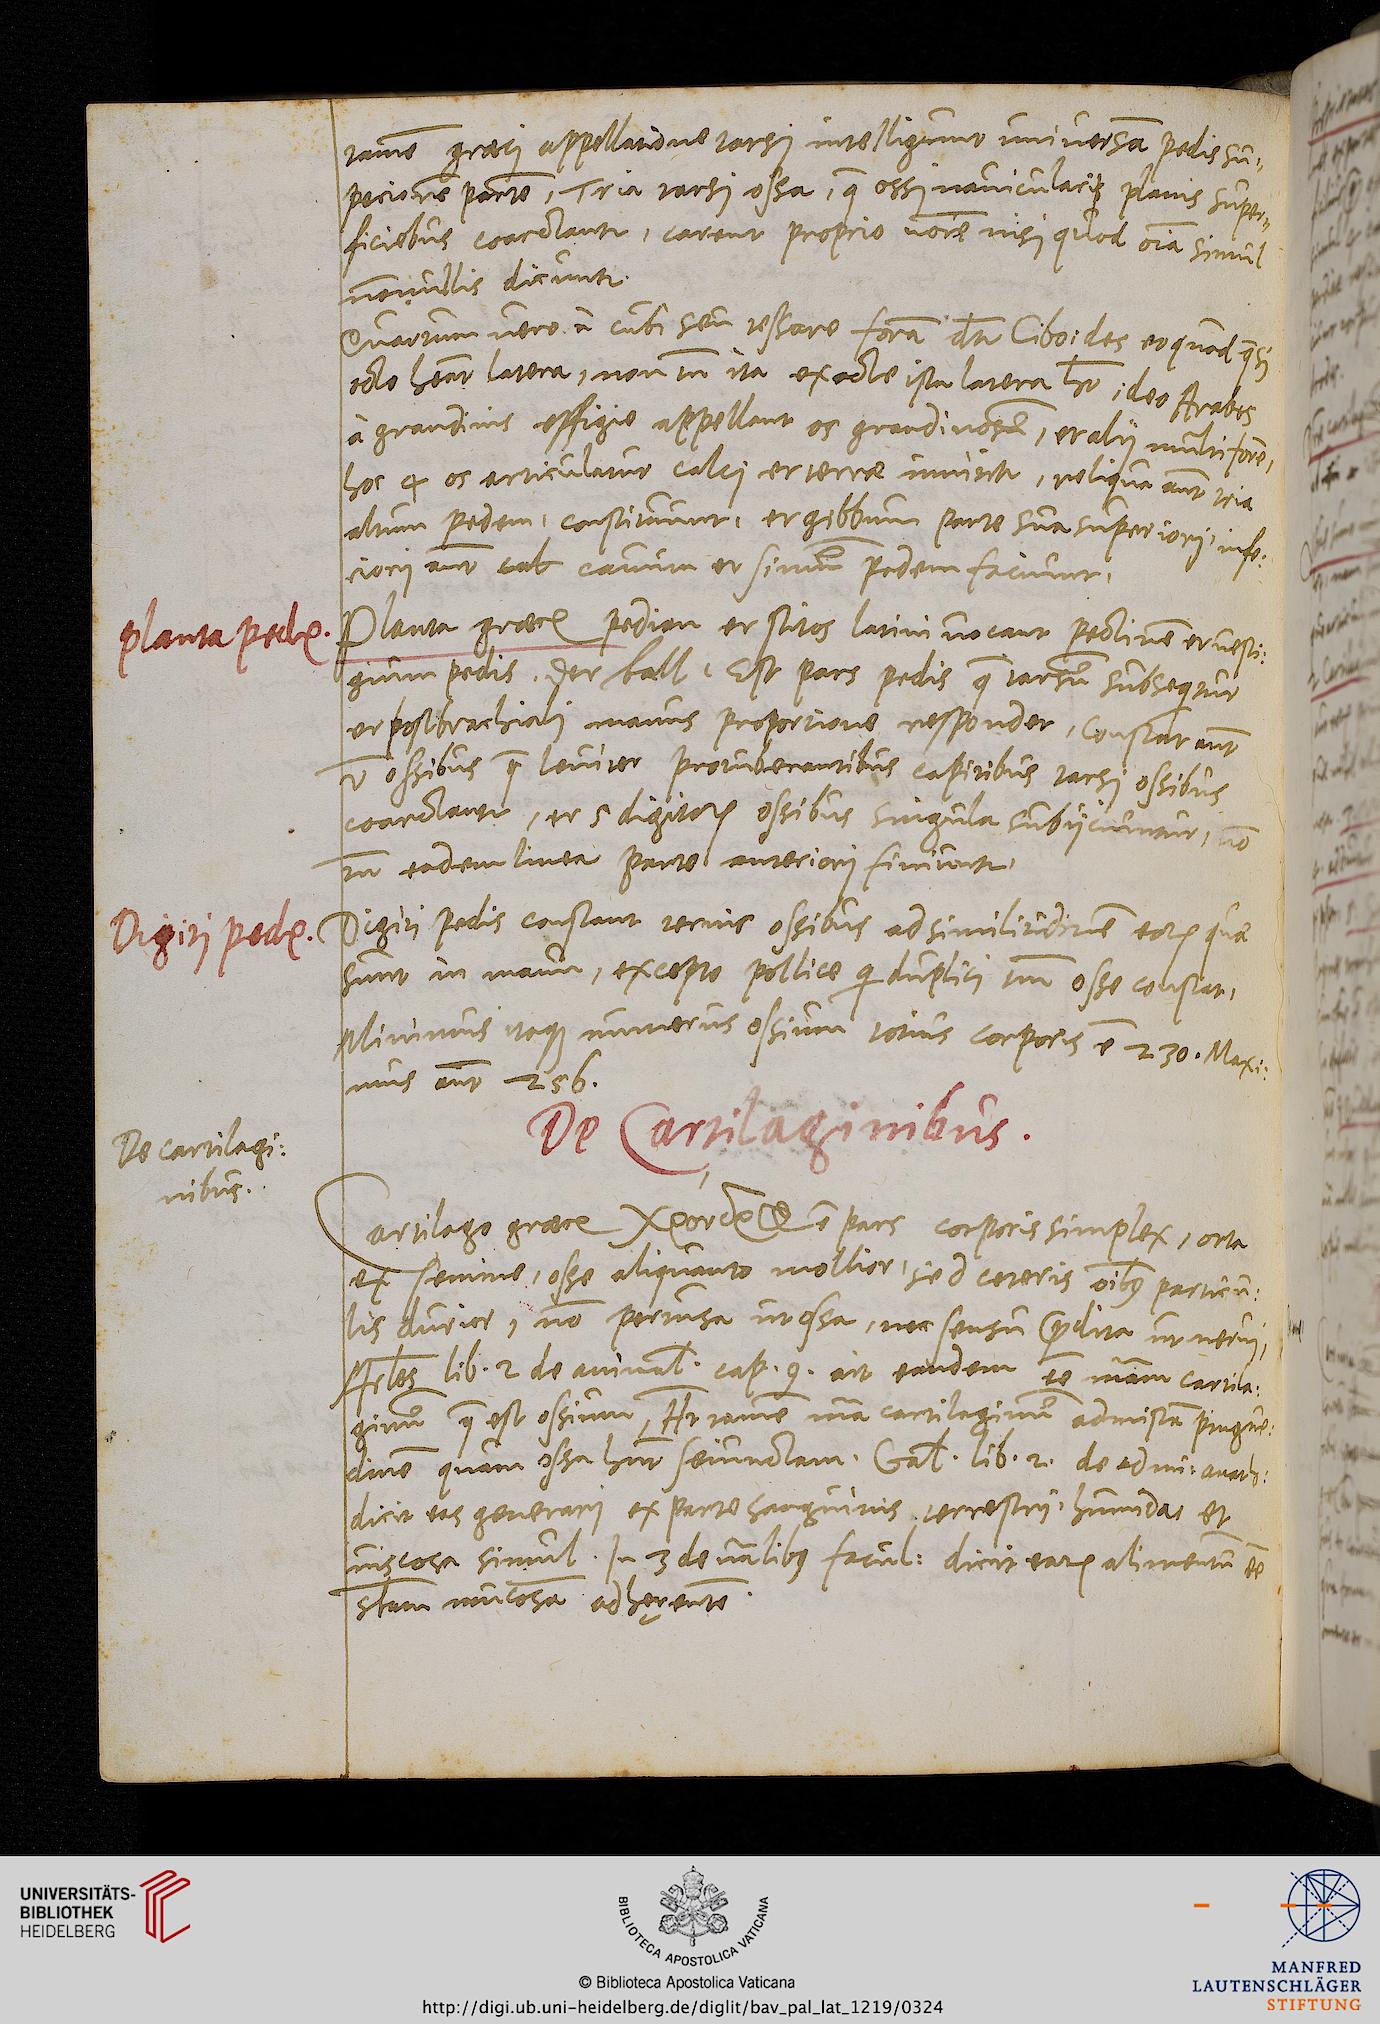 tame͂ græci appellatione tarsi intelligunt universa͂ pedis su:
periore͂ parte͂, Tria tarsi ossa, q̃ ossi naviculari planis super:
ficiebus coarctantr, carent proprio no͂ie nisi quod o͂ia simul
no͂nullis dicuntr.
Quartum vero à cubi seu tessare forma d͂ta Ciboides eo quod q̃si
octo hea͂t latera, non tn͂ ita exacte ista latera h͂t, ideo Arabes
à grandinis effigie appellant os grandinosu͂, et alij multiforme,
hoc 4 os articulatur calci et terræ innititr, reliqua aut͂ tria
altum pedem constituunt, et gibbum parte sua superiori, infe:
riori aut͂ cavum et sinuu͂ pedem faciunt.
Planta pedis.
Planta græce pedion et stitos latini vocant pectine͂ et vesti:
gium pedis. der ball. Est pars pedis q̃ tarsu͂ subsequitur
et postbrachiali manus proportione respondet, Constat aut͂
v ossibus q̃ leniter protuberantibus capitibus tarsi ossibus
coarctantr, et 5 digitorum ossibus singula subijciuntur, no͂
tn͂ eadem linea parte anteriori finiuntr.
Digiti pedis.
Digiti pedis constant ternis ossibus ad similitudine͂ eorum quæ
sunt in manu, excepto pollice qui duplici tm͂ osse constat,
Minimus itaque numerus ossium totius corporis e͂ 230. Maxi:
mus aut͂ 256.
De Cartilaginibus.
De cartilagi:
nibus.
Cartilago græce e͂ pars corporis simplex, orta
ex semine, osse aliquanto mollior, sed ceteris o͂ibus particu:
lis durior, no͂ pertusa ut ossa, nec sensu prædita ut nervi,
Ar͂les lib. 2 de animal. cap. 9. ait eandem e͂e na͂m cartila:
ginu͂ q̃ est ossium, H͂t tame͂ na͂ cartilaginu͂ admista͂ pingue:
dine͂ quam ossa hn͂t seiunctam. Gal. lib. 2. de admi: anato:
dicit eas generari ex parte sanguinis terrestri humida et
viscosa simul. In 3 de na͂libus facul: dicit earum alimentu͂ e͂e
sb͂am mucosa͂ adhęrente͂.
UNIVERSITÄTS-
BIBLIOTHEK
HEIDELBERG
BIBLIOTECA APOSTOLICA VATICANA
© Biblioteca Apostolica Vaticana
http://digi.ub.uni-heidelberg.de/diglit/bav_pal_lat_1219/0324
MANFRED
LAUTENSCHLÄGER
STIFTUNG